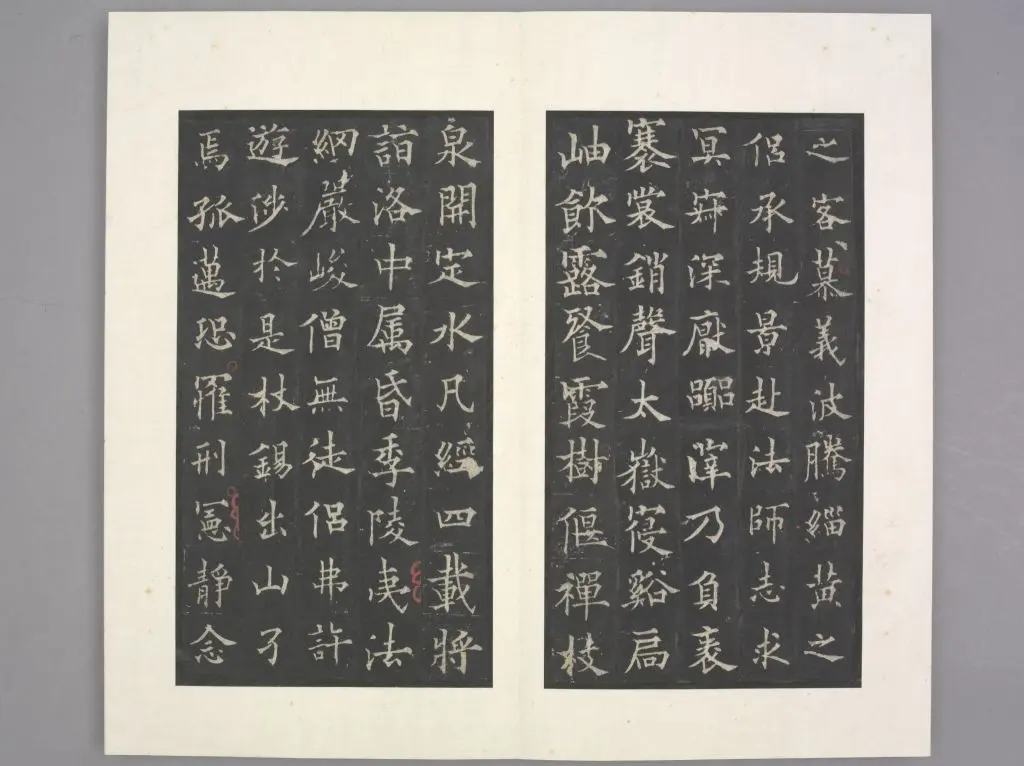 之客慕義波騰緇黃之
侶承規景赴法師志求
冥寂深厭嚻滓乃負袠
褰裳銷聲太嶽寑谿扃
岫飲露餐霞樹偃禪枝
泉開定水凡經四載將
詣洛中属昏季陵夷法
網嚴峻僧無徒侶弗許
遊涉於是杖錫出山孑
焉孤邁恐罹刑憲靜念